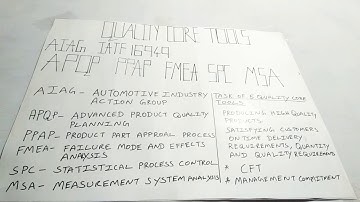 QUALITY CORE TOOLS
AIAG IATF 16949
APQP PPAP FMEA SPC MSA
AIAG - AUTOMOTIVE INDUSTRY
ACTION GROUP
APQP - ADVANCED PRODUCT QUALITY
PLANNING
PPAP - PRODUCT PART APPROAL PROCESS
FMEA - FAILURE MODE AND EFFECTS
ANALYSIS
SPC - STATISTICAL PROCESS CONTROL
MSA - MEASUREMENT SYSTEM ANALYSIS
TASK OF 5 QUALITY CORE
TOOLS
PRODUCING HIGH QUALITY
PRODUCTS
SATISFYING CUSTOMERS
ON TIME DELIVERY
REQUIREMENTS, QUANTITY
AND QUALITY REQUIREMENTS
* CFT
* MANAGEMENT COMMITMENT